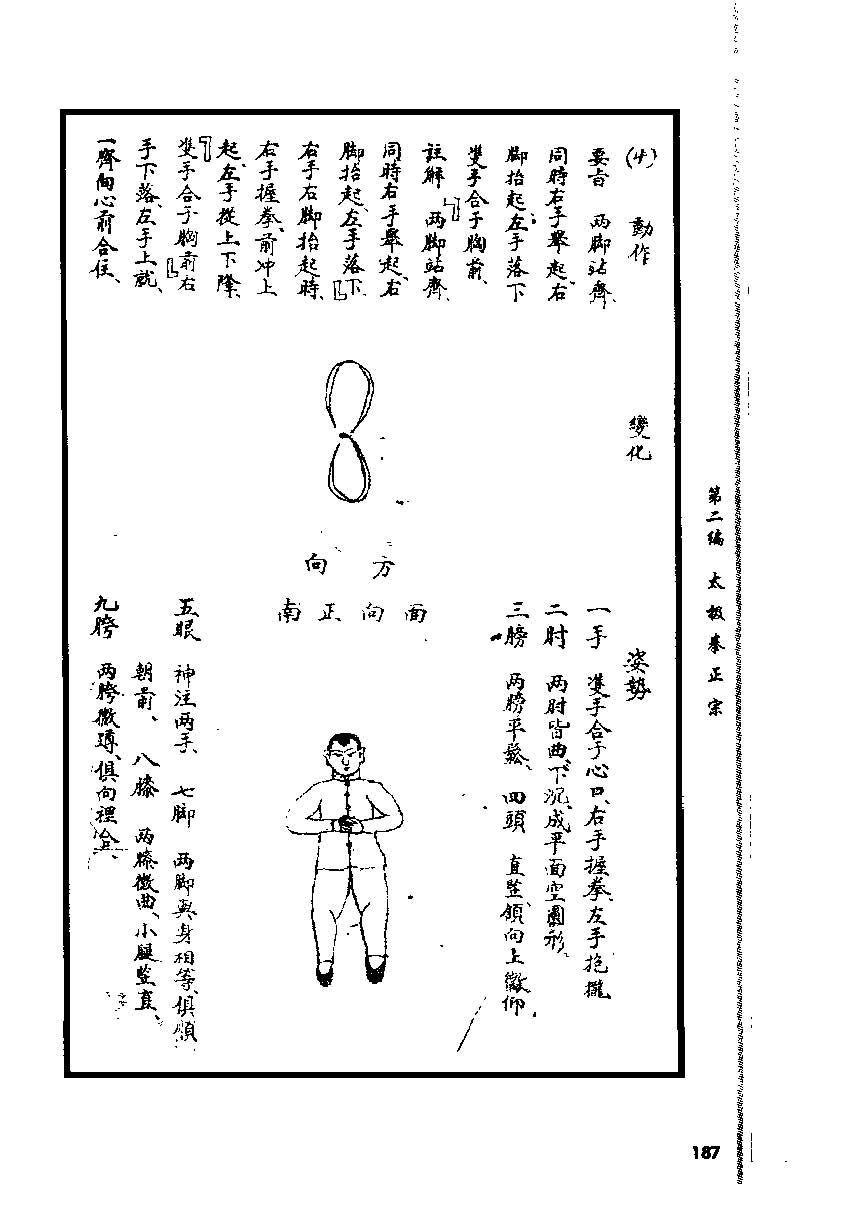 第二編 太极拳正宗
(4) 動作
要旨 两脚站齊、
同時右手舉起、右
脚抬起、左手落下
雙手合于胸前、
註解 『两脚站齊、
同時右手舉起、右
脚抬起、左手落下、』
右手右脚抬起時、
右手握拳、前冲上
起、左手從上下降、
『雙手合于胸前』右
手下落、左手上就、
一齊向心前合住、
變化
方向
面向正南
姿勢
一手 雙手合于心口、右手握拳、左手抱攏
二肘 两肘皆曲、下沉、成平面空圓形、
三膀 两膀平鬆、 四頭 直竪、領向上微仰、
五眼 神注两手、 七脚 两脚與身相等、俱順
朝前、 八膝 两膝微曲、小腿竪直、
九胯 两胯微蹲、俱向裡合、
187